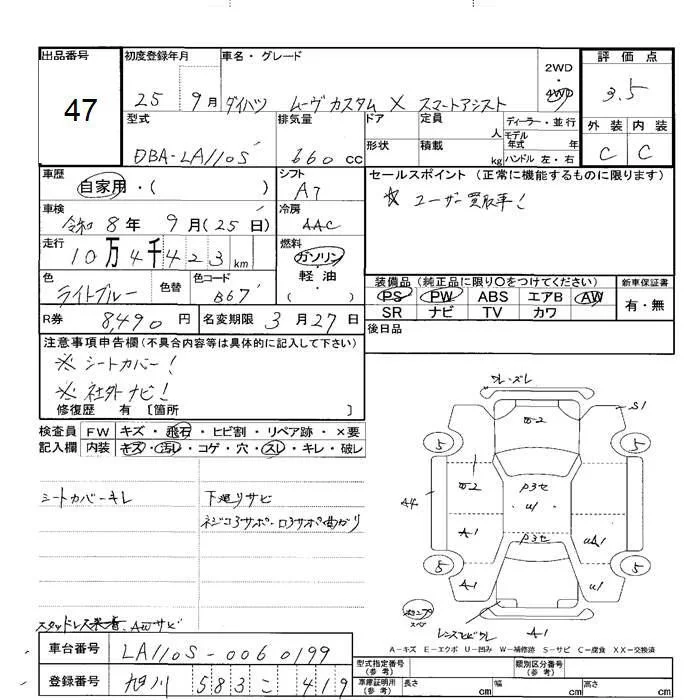 出品番号
47
初度登録年月
25 9月
車名・グレード
ダイハツ ムーヴ カスタム X スマートアシスト
2WD
4WD
評価点
3.5
外装 内装
C C
型式
DBA-LA110S
排気量
660 cc
ドア
定員
人
形状
積載
kg
ディーラー・並行
モデル年式 年
ハンドル 左・右
車歴
自家用・( )
シフト
A7
セールスポイント (正常に機能するものに限ります)
☆ ユーザー買取車!
車検
令和 8年 9月(25日)
冷房
AAC
走行
10万4千423km
燃料
ガソリン
軽・油
( )
色
ライトブルー
色替
色コード
B67
装備品 (純正品に限り○をつけてください)
PS PW ABS エアB AW
SR ナビ TV カワ
新車保証書
有・無
R券 8,490円
名変期限 3月27日
後日品
注意事項申告欄 (不具合内容等は具体的に記入して下さい)
※ シートカバー!
※ 社外ナビ!
修復歴 有 〔箇所 〕
検査員記入欄
FW キズ・飛石・ヒビ割・リペア跡・×要
内装 キズ・汚レ・コゲ・穴・スレ・キレ・破レ
シートカバーキレ
下廻リサビ
スタッドレス AWサビ
S1
U-2
5 5
A4
U-2
P3セ
U1
A-1
UA1
P3セ
5 5
A-1
U1
A-1
A-キズ E-エクボ U-凹み W-補修跡 S-サビ C-腐食 XX-交換済
車台番号
LA110S-0060199
登録番号
旭川 583 こ 419
型式指定番号(参考)
類別区分番号(参考)
車庫証明用(参考)
長さ cm
幅 cm
高さ cm